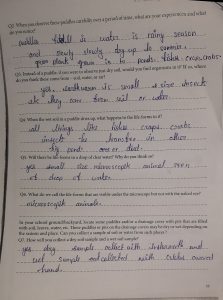 Q2. When you observe these puddles carefully over a period of time, what do you experience and what
do you notice?
puddles filled is water is rainy season
and slowly slowly dry up to summer.
green plant grown is to ponds. fishes cross crabs.
Q3. Instead of a puddle, if you were to observe just dry soil, would you find organisms in it? If so, where
do you think these come from - soil, water, or air?
yes, earthworm is small size insect
etc they come from soil or water.
Q4. When the wet soil in a puddle dries up, what happens to the life forms in it?
all living like fishes craps, crabs
insect to transfer in other
big pond one or died.
Q5. Will there be life forms in a drop of clear water? Why do you think so?
yes small size microscopic animal seen
of drop of water.
Q6. What do we call the life forms that are visible under the microscope but not with the naked eye?
microscopic animals.
In your school ground/backyard, locate some puddles and/or a drainage cover with pits that are filled
with soil, leaves, water, etc. These puddles or pits on the covers may be dry or wet depending on
the season and place. Can you collect a sample of soil or water from such places?
Q7. How will you collect a dry soil sample and a wet soil sample?
yes dry sample collect with instruments and
wet sample collected with cloths covered
hand.